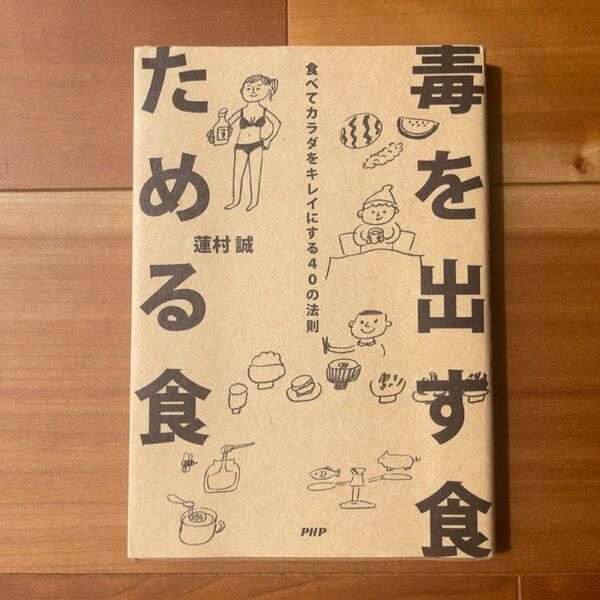 毒を出す食
ためる食
食べてカラダをキレイにする40の法則
蓮村 誠
PHP